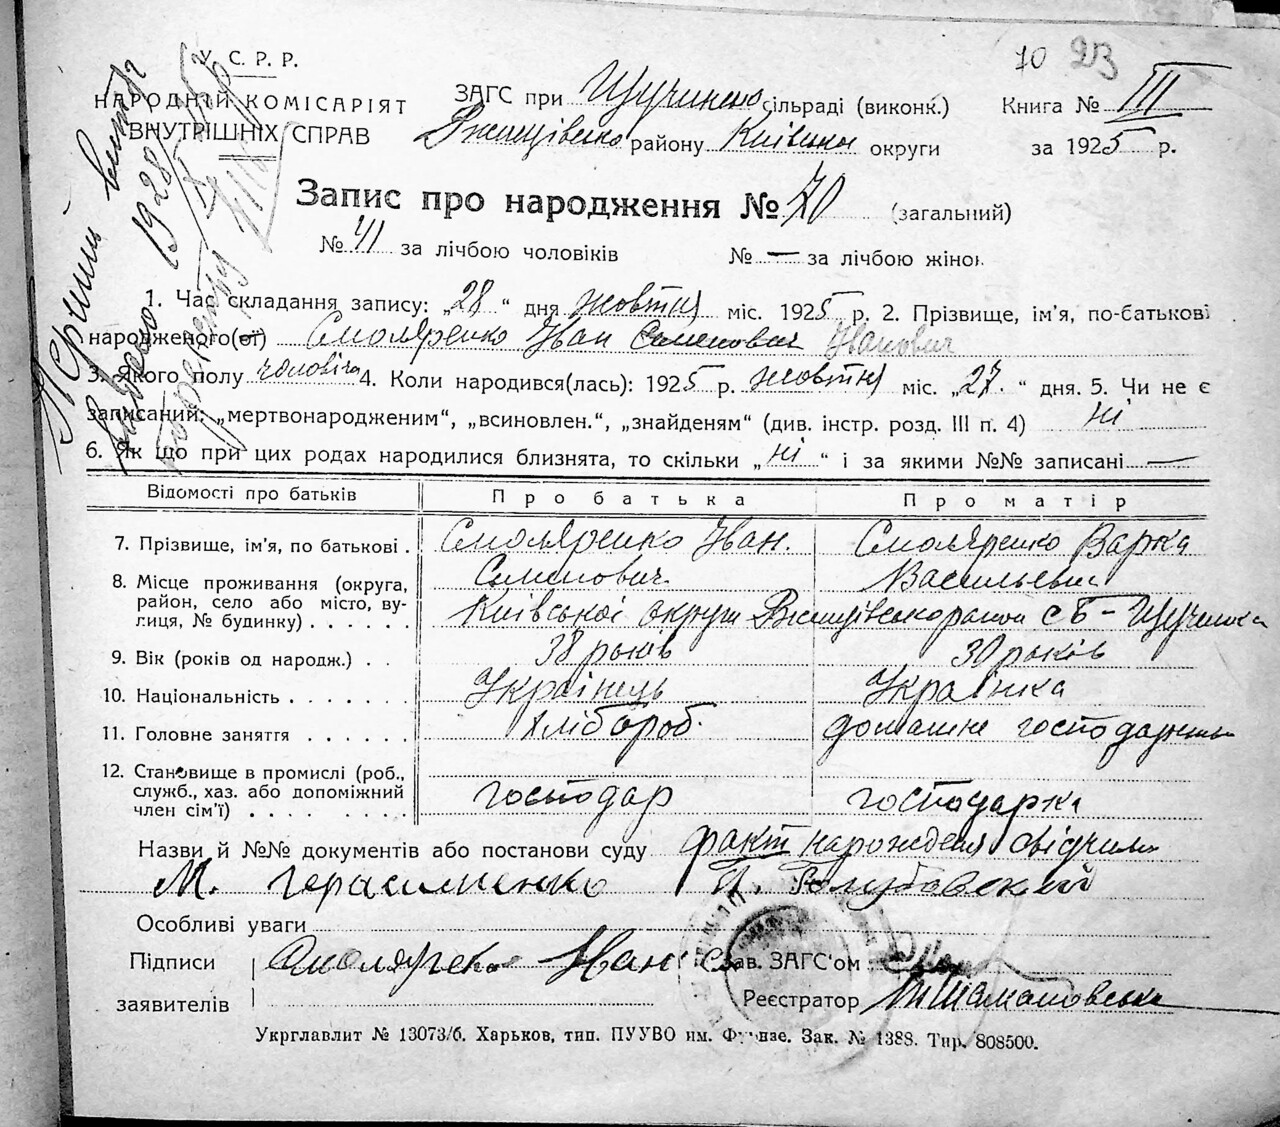 70 23
У. С. Р. Р.
НАРОДНІЙ КОМІСАРІЯТ
ВНУТРІШНІХ СПРАВ
ЗАГС при Щучинсько сільраді (виконк.)
Ржищівсько району Київсько округи
Книга № III
за 1925 р.
Перший витяг
видано 1928
Запис про народження № 70 (загальний)
№ 41 за лічбою чоловіків № — за лічбою жінок
1. Час складання запису: „28“ дня жовтня міс. 1925 р. 2. Прізвище, ім'я, по-батькові
народженого(ої) Смоляренко Іван Семенович Іванович
3. Якого полу чоловіча 4. Коли народився(лась): 1925 р. жовтня міс. „27“ дня. 5. Чи не є
записаний: „мертвонародженим“, „всиновлен.“, „знайденям“ (див. інстр. розд. III п. 4) ні
6. Як що при цих родах народилися близнята, то скільки „ні“ і за якими №№ записані —
Відомості про батьків Про батька Про матір
7. Прізвище, ім'я, по батькові . Смоляренко Іван. Смоляренко Варка
Семенович Васильевна
8. Місце проживання (округа, район, село або місто, вулиця, № будинку) . . . . . Київської округи Ржищівського району с Б-Щучинка
9. Вік (років од народж.) . . 38 років 30 років
10. Національність . . . . . . . Українець Українка
11. Головне заняття . . . . . . Хлібороб. домашнє господарство
12. Становище в промислі (роб.,
служб., хаз. або допоміжний
член сім'ї) . . . . . . . . господар господарка
Назви й №№ документів або постанови суду факт нарождения свідчили
М. Герасименко П. Голубовский
Особливі уваги
Підписи Смоляренко Іван С Зав. ЗАГС'ом
заявителів Реєстратор Шамановська
Укрглавлит № 13073/б. Харьков, тип. ПУУВО им. Фрунзе. Зак. № 1388. Тир. 808500.